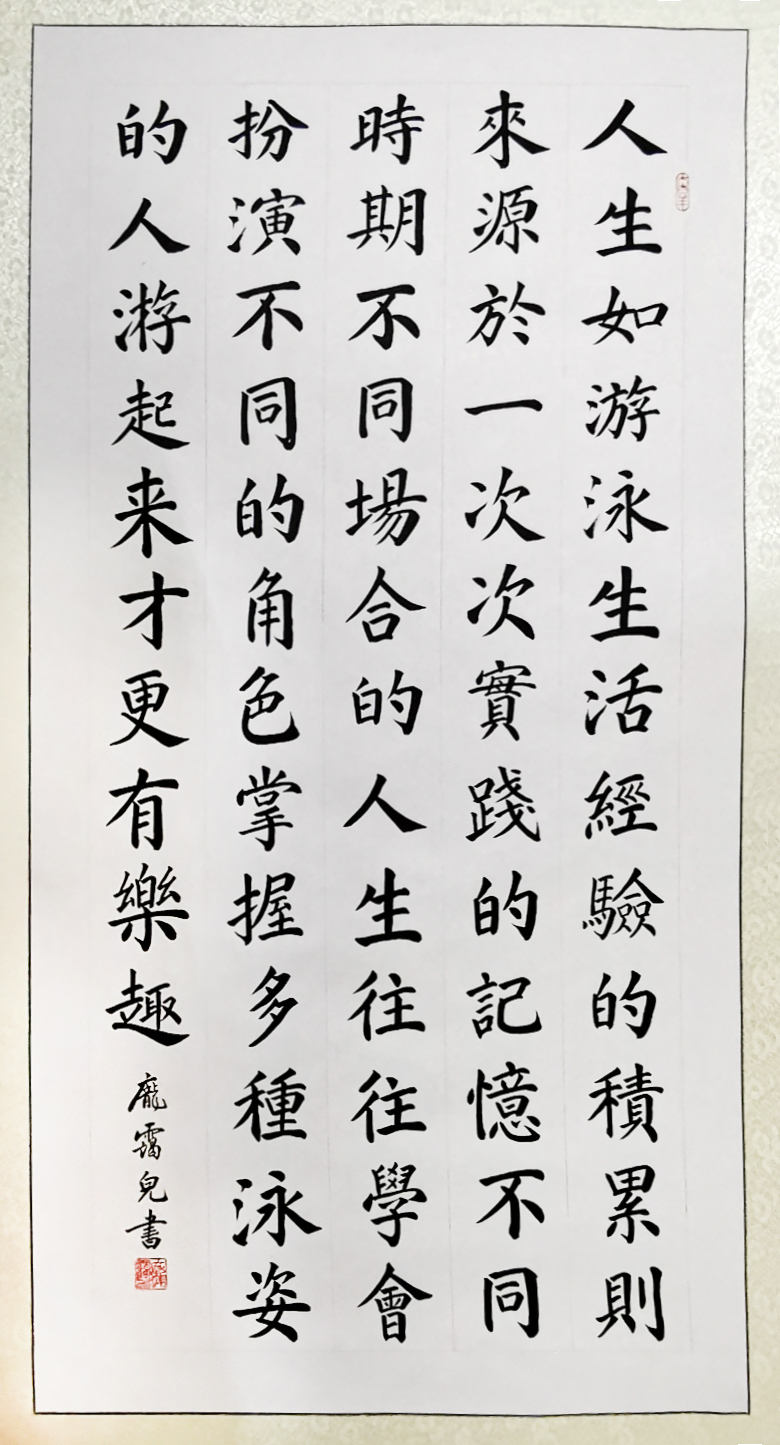 人生如游泳生活經驗的積累則
來源於一次次實踐的記憶不同
時期不同場合的人生往往學會
扮演不同的角色掌握多種泳姿
的人游起来才更有樂趣
龐靄兒書